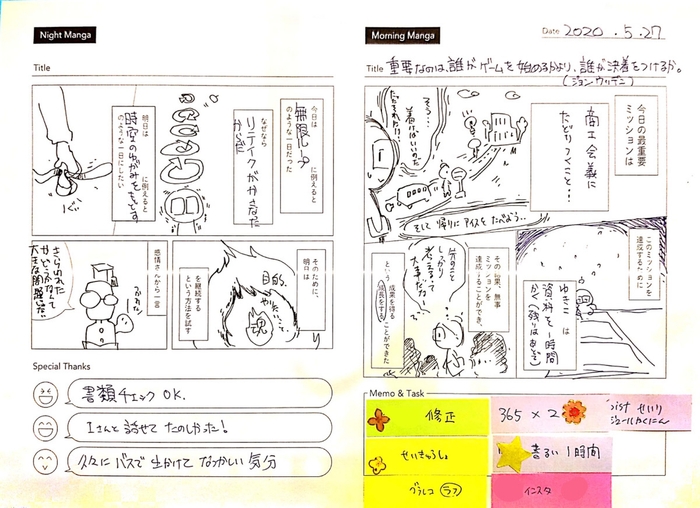 Night Manga
Title
今日は
無限ループ
に例えると
のような一日だった
なぜなら
リテイクがやまなかった
からだ
明日は
時空のゆがみをもどす
に例えると
のような一日にしたい
そのために、
明日は
目的、
やりたいこと
を継続する
という方法を試す
感情さんから一言
Special Thanks
書類チェックOK.
Iさんと話せてたのしかった!
久々にバスで出かけてなつかしい気分
Morning Manga
Date 2020.5.27
Title 重要なのは、誰がゲームを始めるかより、誰が決着をつけるか。
(ジョン・ウッデン)
今日の最重要
ミッションは
商工会議に
たどりつくこと…
そして帰りにアイスをたべよう…
このミッションを
達成するために
ゆきこは
資料を1時間
かく(残りはあとで)
その結果、無事
ミッションを
達成することができ、
先のこと
しっかり
考えるって
大事だな…
という 成果を得る
成長をする
ことができた
Memo & Task
修正
365×2
せいきゅうしょ
書るい1時間
グラレコ ラフ
インスタ